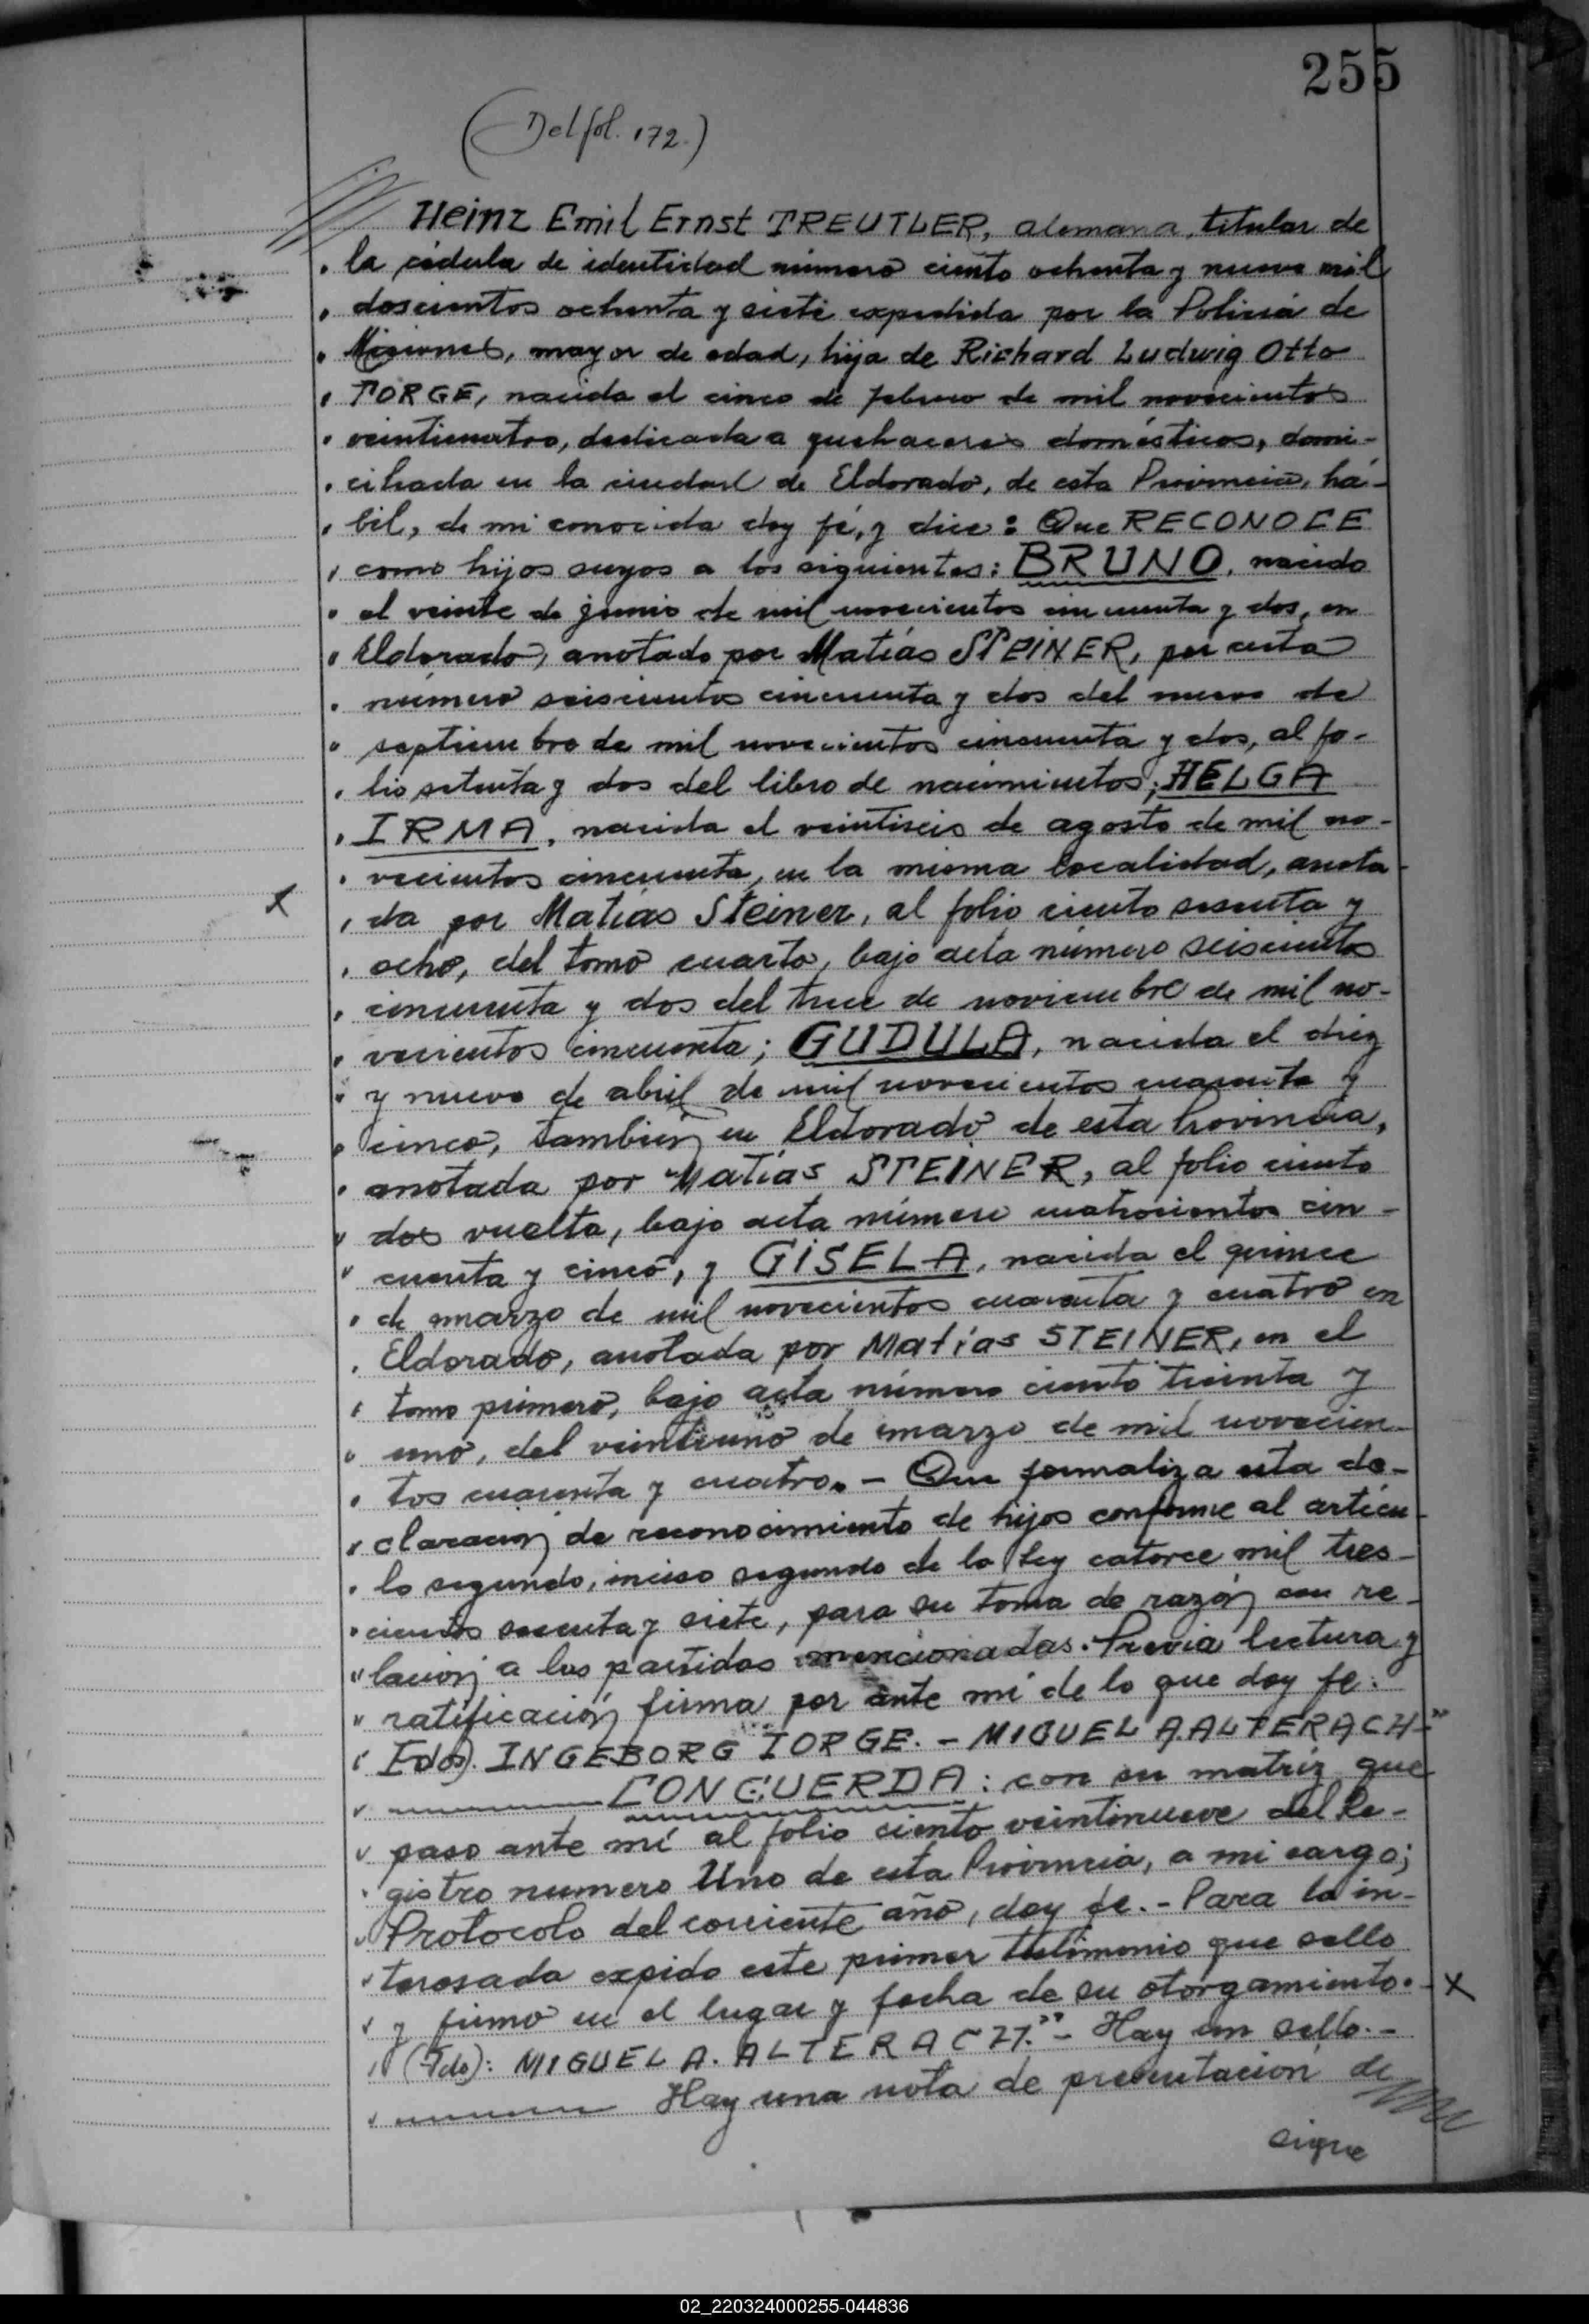 255
(Del fol. 172.)
Heinz Emil Ernst TREUTLER, alemana, titular de
" la cédula de identidad número ciento ochenta y nueve mil
" doscientos ochenta y siete expedida por la Policía de
" Misiones, mayor de edad, hija de Richard Ludwig Otto
" TORGE, nacida el cinco de febrero de mil novecientos
" veinticuatro, dedicada a quehaceres domésticos, domi-
" ciliada en la ciudad de Eldorado, de esta Provincia, há-
" bil, de mi conocida doy fé, y dice: Que RECONOCE
" como hijos suyos a los siguientes: BRUNO, nacido
" el veinte de junio de mil novecientos cincuenta y dos, en
" Eldorado, anotado por Matías STEINER, por acta
" número seiscientos cincuenta y dos del nueve de
" septiembre de mil novecientos cincuenta y dos, al fo-
" lio setenta y dos del libro de nacimientos; HELGA
" IRMA, nacida el veintiseis de agosto de mil no-
" vecientos cincuenta, en la misma localidad, anota-
" da por Matías Steiner, al folio ciento sesenta y
" ocho, del tomo cuarto, bajo acta número seiscientos
" cincuenta y dos del trece de noviembre de mil no-
" vecientos cincuenta; GUDULA, nacida el diez
" y nueve de abril de mil novecientos cuarenta y
" cinco, también en Eldorado de esta Provincia,
" anotada por Matías STEINER, al folio ciento
" dos vuelta, bajo acta número cuatrocientos cin-
" cuenta y cinco, y GISELA, nacida el quince
" de marzo de mil novecientos cuarenta y cuatro en
" Eldorado, anotada por Matías STEINER, en el
" tomo primero, bajo acta número ciento treinta y
" uno, del veintiuno de marzo de mil novecien-
" tos cuarenta y cuatro. - Que formaliza esta de-
" claración de reconocimiento de hijos conforme al artícu-
" lo segundo, inciso segundo de la ley catorce mil tres-
" cientos sesenta y siete, para su toma de razón con re-
" lación a las partidas mencionadas. Previa lectura y
" ratificación firma por ante mí de lo que doy fe.
" Fdos). INGEBORG TORGE. - MIGUEL A. ALTERACH-"
" CONCUERDA: con su matriz que
" paso ante mí al folio ciento veintinueve del Re-
" gistro numero Uno de esta Provincia, a mi cargo;
" Protocolo del corriente año, doy fe. - Para la in-
" teresada expido este primer testimonio que sello
" y firmo en el lugar y fecha de su otorgamiento. - X
" (Fdo): MIGUEL A. ALTERACH." - Hay un sello. -
" Hay una nota de presentación de
sigue
02_220324000255-044836